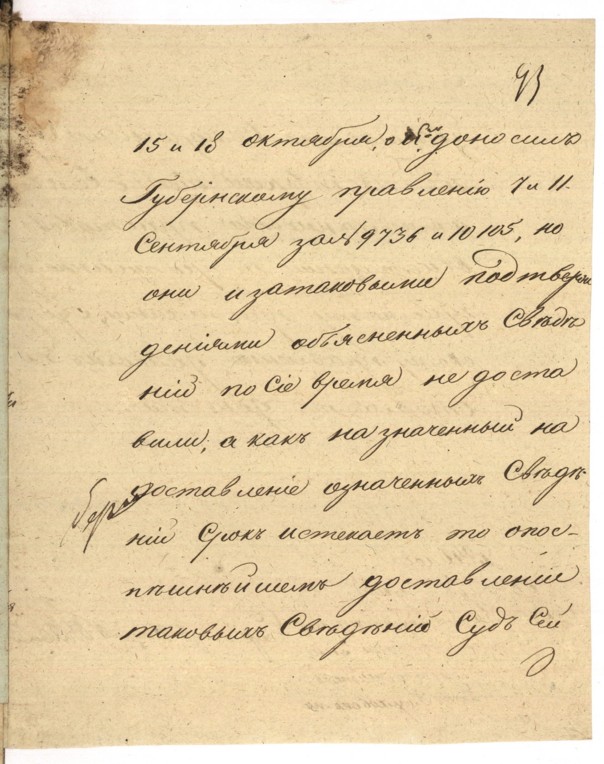 93
15 и 18 октября, о чемъ доносилъ
Губернскому правленію 7 и 11.
Сентября за № 9736 и 10105, но
они и затаковыми подтверж
деніями объясненныхъ Свѣдѣ
ній по Сіе время не доста
вили; а какъ назначенный на
доставленіе означенныхъ Свѣдѣ
ній Срокъ истекаетъ то опос-
пѣшнѣйшемъ доставленіи
таковыхъ Свѣдѣній Судъ Сей